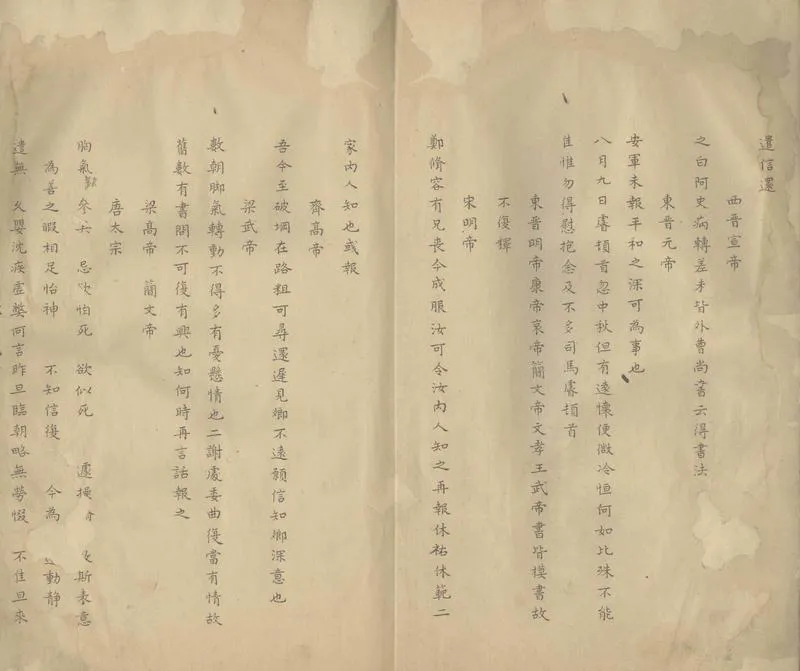 遣信還
西晉宣帝
之白阿史病轉差未皆外曹尚書云得書法
東晉元帝
安軍未報平和之深可為事也
八月九日睿頓首忽中秋但有遠懷便微冷恒何如比殊不能
佳惟勿得慰抱念及不多司馬睿頓首
東晉明帝康帝哀帝簡文帝文孝王武帝書皆模書故
不復釋
宋明帝
鄭脩容有兄喪今成服汝可令汝內人知之再報休祐休範二
家內人知也或報
齊高帝
吾今至破堈在路粗可尋還遲見卿不遠願信知卿深意也
梁武帝
數朝脚氣轉動不得多有憂懸情也二謝處委曲復當有情故
舊數有書問不可復有興也知何時再言話報之
梁高帝 簡文帝
唐太宗
胸氣 參 忌 怕死 欲似死 遽 斯表意
為善之暇相足怡神 不知信復 今為 動靜
遣無 久嬰沈疾虛弊何言昨旦臨朝略無勞惙 不佳旦來